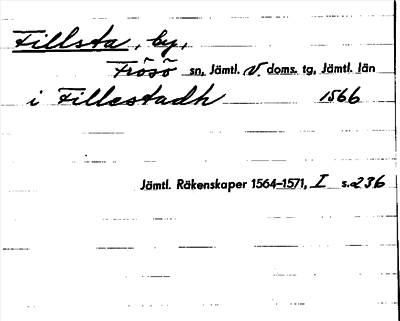 Fillsta, by,
Frösö sn, Jämtl. V. doms. tg, Jämtl. län
i Fillestadh 1566
Jämtl. Räkenskaper 1564-1571, I s. 236